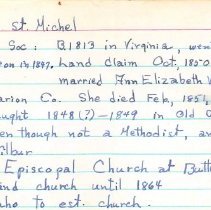 St. Michel
Soc: B.1813 in Virginia, wen
on in 1847. Land claim Oct, 1850
married Ann Elizabeth W
arion Co. She died Feb, 1851,
ught 1848(?)-1849 in Old O
en though not a Methodist, an
ilbur
Episcopal Church at Butt
and church until 1864
aho to est. church.